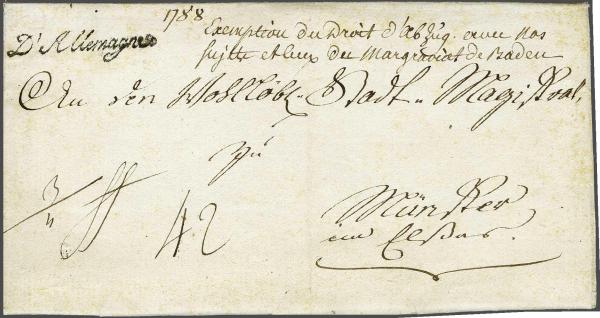 1788
D'Allemagne
Exemption du Droit d'abzug. entre nos
sujets et ceux du Margraviat de Baden
An den Wohllöbl. Stadt-Magistrat,
zu
42
Münster
im Elsas.